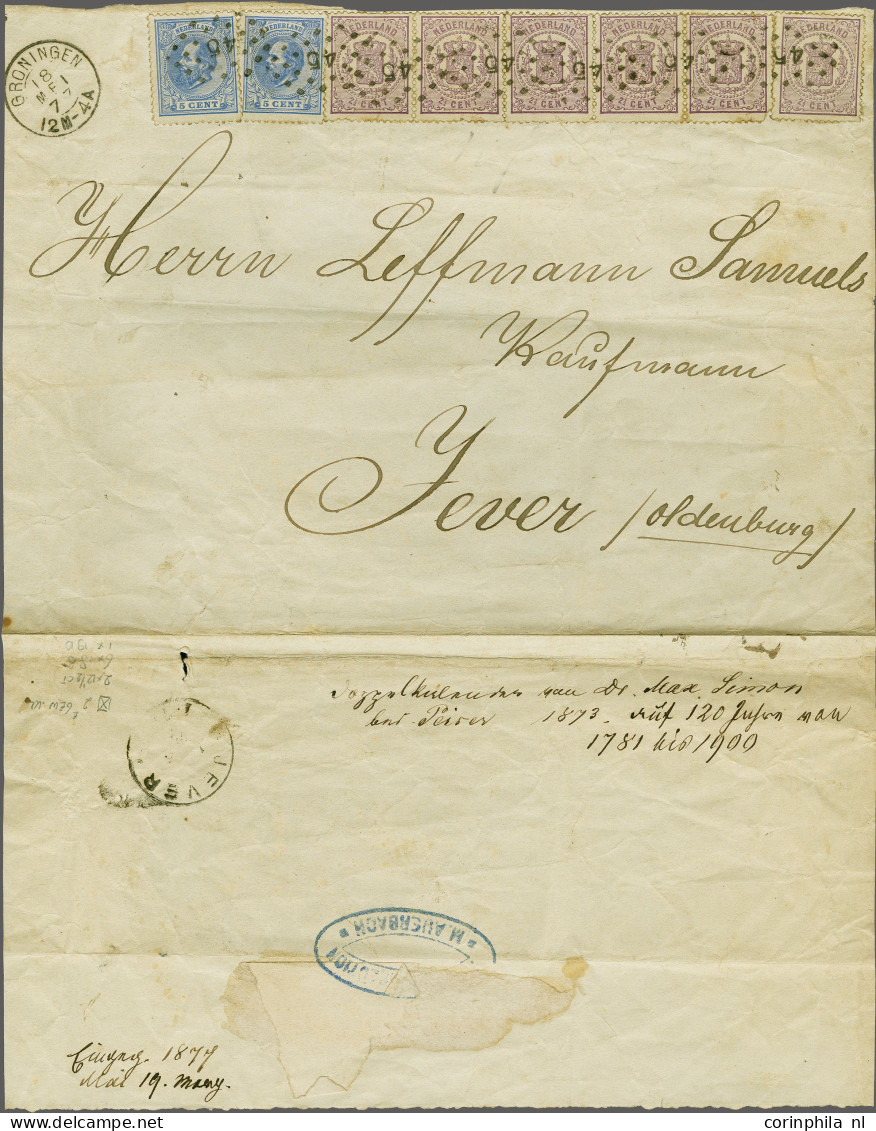 GRONINGEN
18
MEI
77
12M-4A
NEDERLAND NEDERLAND NEDERLAND NEDERLAND NEDERLAND NEDERLAND NEDERLAND NEDERLAND
5 CENT 5 CENT 2½ CENT 2½ CENT 2½ CENT 2½ CENT 2½ CENT 2½ CENT
45 45 45 45 45 45 45
Herrn Leffmann Samuels
Kaufmann
Jever /Oldenburg/
Doppelkalender von Dr. Max Simon
bei Peiser 1873. auf 120 Jahre von
1781 bis 1900
JEVER
* M. AUERBACH *
Eingeg. 1877
Mai 19. morg.
corinphila nl